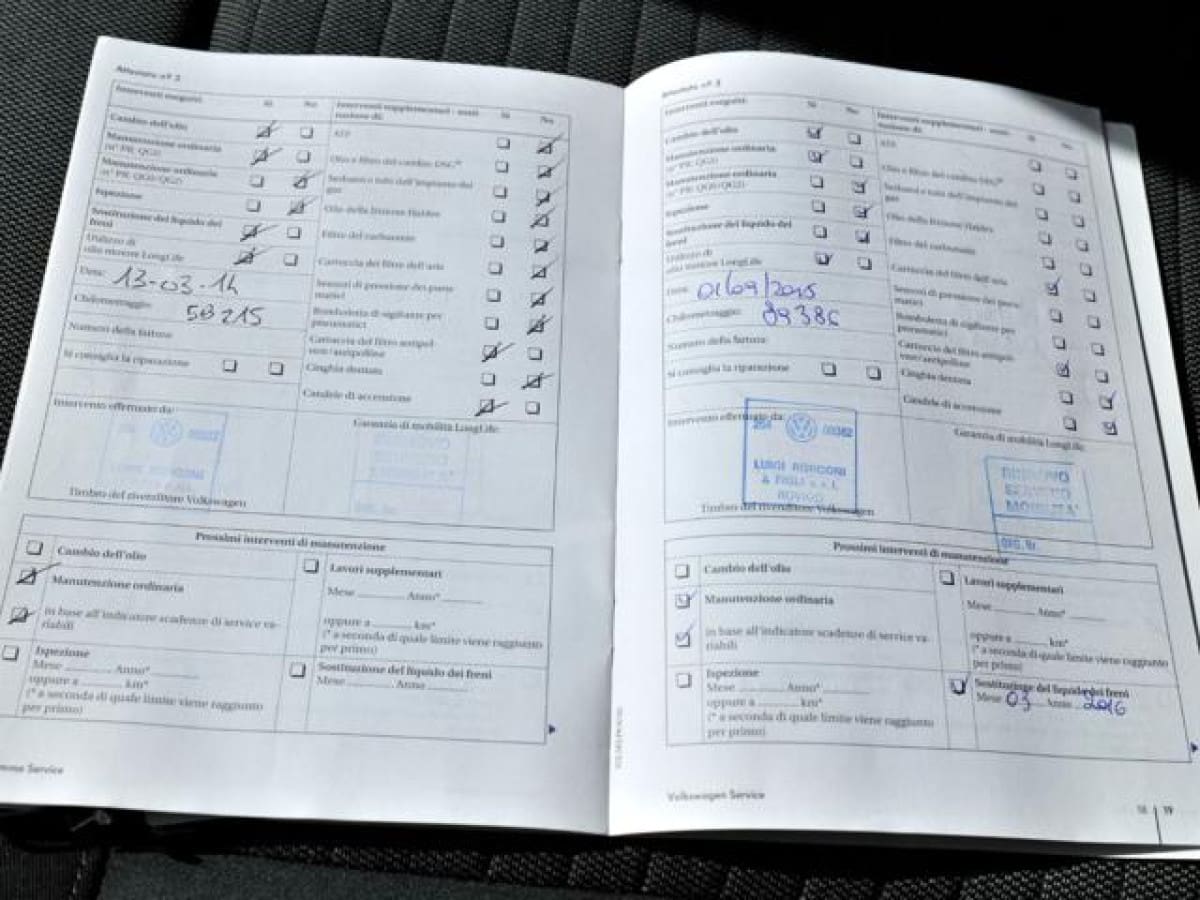 Attestato nº 2
Interventi eseguiti: Sì No
Cambio dell'olio
Manutenzione ordinaria
(nº PR QG1)
Manutenzione ordinaria
(nº PR QG0/QG2)
Ispezione
Sostituzione del liquido dei
freni
Utilizzo di
olio motore LongLife
Data: 13-03-14
Chilometraggio: 58215
Numero della fattura:
Si consiglia la riparazione
Interventi supplementari - sosti-
tuzione di: Sì No
ATF
Olio e filtro del cambio DSG®
Serbatoi e tubi dell'impianto del
gas
Olio della frizione Haldex
Filtro del carburante
Cartuccia del filtro dell'aria
Sensori di pressione dei pneu-
matici
Bomboletta di sigillante per
pneumatici
Cartuccia del filtro antipol-
vere/antipolline
Cinghia dentata
Candele di accensione
Intervento effettuato da:
Timbro del rivenditore Volkswagen
Garanzia di mobilità LongLife:
Prossimi interventi di manutenzione
Cambio dell'olio
Manutenzione ordinaria
in base all'indicatore scadenze di service va-
riabili
Ispezione
Mese Anno*
oppure a km*
(* a seconda di quale limite viene raggiunto
per primo)
Lavori supplementari
Mese Anno*
oppure a km*
(* a seconda di quale limite viene raggiunto
per primo)
Sostituzione del liquido dei freni
Mese Anno
Service
Attestato nº 3
Interventi eseguiti: Sì No
Cambio dell'olio
Manutenzione ordinaria
(nº PR QG1)
Manutenzione ordinaria
(nº PR QG0/QG2)
Ispezione
Sostituzione del liquido dei
freni
Utilizzo di
olio motore LongLife
Data: 01/09/2015
Chilometraggio: 89386
Numero della fattura:
Si consiglia la riparazione
Interventi supplementari - sosti-
tuzione di: Sì No
ATF
Olio e filtro del cambio DSG®
Serbatoi e tubi dell'impianto del
gas
Olio della frizione Haldex
Filtro del carburante
Cartuccia del filtro dell'aria
Sensori di pressione dei pneu-
matici
Bomboletta di sigillante per
pneumatici
Cartuccia del filtro antipol-
vere/antipolline
Cinghia dentata
Candele di accensione
Intervento effettuato da:
LUIGI RONCONI
& FIGLI s.r.l.
ROVIGO
Timbro del rivenditore Volkswagen
Garanzia di mobilità LongLife:
SERVIZIO
MOBILITA'
ORG. Nr.
Prossimi interventi di manutenzione
Cambio dell'olio
Manutenzione ordinaria
in base all'indicatore scadenze di service va-
riabili
Ispezione
Mese Anno*
oppure a km*
(* a seconda di quale limite viene raggiunto
per primo)
Lavori supplementari
Mese Anno*
oppure a km*
(* a seconda di quale limite viene raggiunto
per primo)
Sostituzione del liquido dei freni
Mese 03 Anno 2016
Volkswagen Service
19